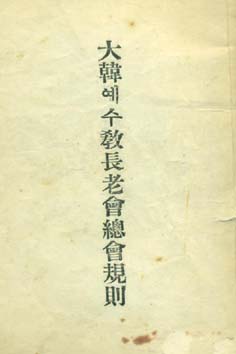 大韓예수敎長老會總會規則